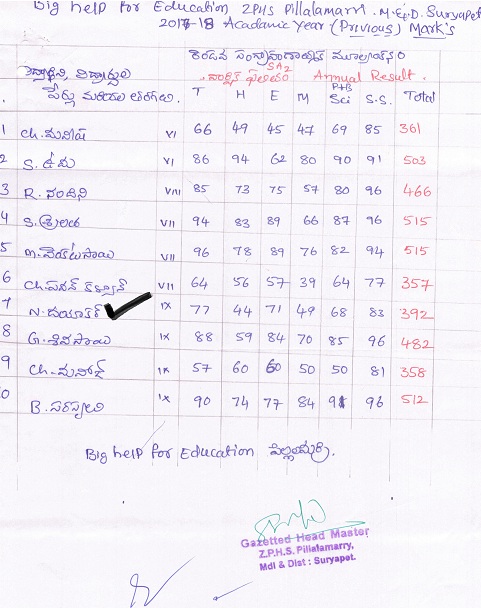 Big help for Education ZPHS Pillalamarri. M & D. Suryapet
2017-18 Acadamic Year (Previous) Mark's
SA2
వార్షిక ఫలితం Annual Result.
విద్యార్థుల
పేర్లు మరియు తరగతి. T H E M P+B Sci S.S. Total
1 Ch. మనీషా VI 66 49 45 47 69 85 361
2 S. ఉమ VI 86 94 62 80 90 91 503
3 R. నందిని VIII 85 73 75 57 80 96 466
4 S. శ్రీలత VII 94 83 89 66 87 96 515
5 M. VII 96 78 89 76 82 94 515
6 Ch. పవన్ కళ్యాణ్ VII 64 56 57 39 64 77 357
7 N. దయాకర్ IX 77 44 71 49 68 83 392
8 G. శివసాయి IX 88 59 84 70 85 96 482
9 Ch. మనోజ్ IX 57 60 60 50 50 81 358
10 B. IX 90 74 77 84 91 96 512
Big help for Education పిల్లలమర్రి.
Gazetted Head Master
Z.P.H.S. Pillalamarry,
Mdl & Dist : Suryapet.